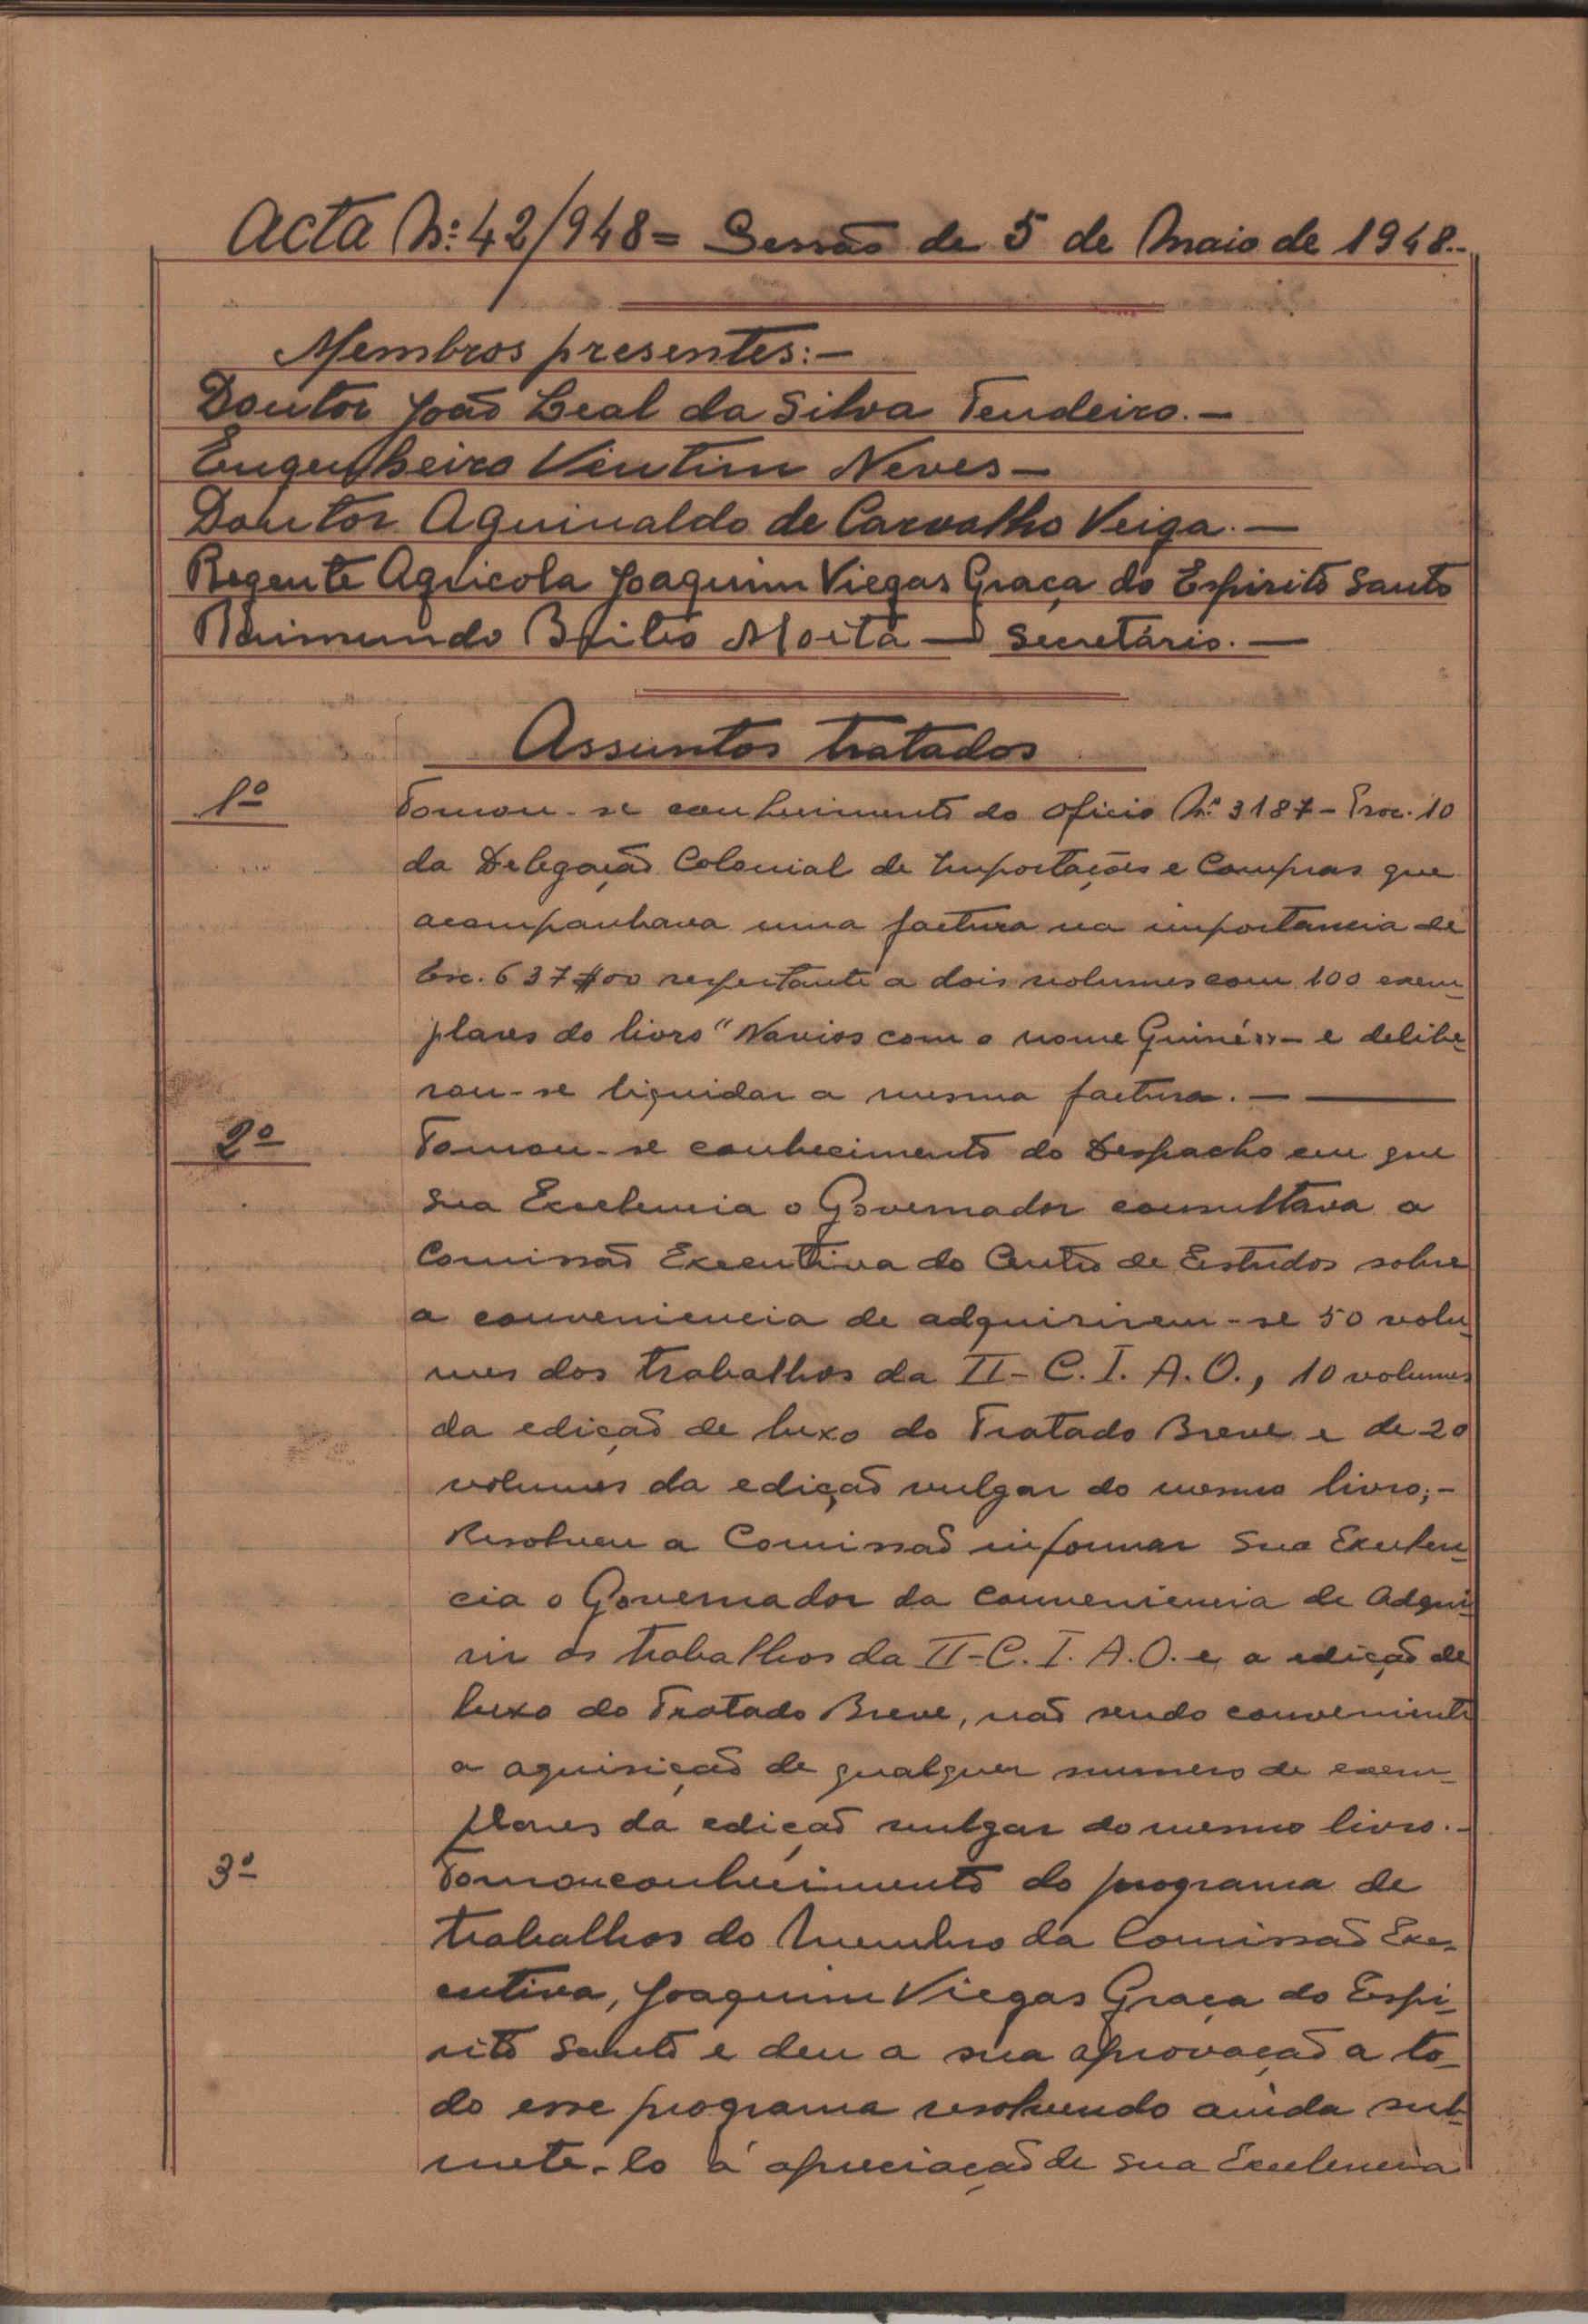 Acta Nº 42/948 = Sessão de 5 de Maio de 1948.-
Membros presentes:-
Doutor João Leal da Silva Tendeiro.-
Engenheiro Vintim Neves-
Doutor Aguinaldo de Carvalho Veiga.-
Regente Agricola Joaquim Viegas Graça do Espirito Santo
Raimundo Brito Moita - Secretário.-
Assuntos tratados
1º Tomou-se conhecimento do oficio Nº 3187 - Proc. 10
da Delegação Colonial de Importações e Compras que
acompanhava uma factura na importancia de
Esc. 637$00 respeitante a dois volumes com 100 exem-
plares do livro "Navios com o nome Guiné" - e delibe-
rou-se liquidar a mesma factura.-
2º Tomou-se conhecimento do Despacho em que
Sua Excelencia o Governador consultava a
Comissão Executiva do Centro de Estudos sobre
a conveniencia de adquirirem-se 50 volu-
mes dos trabalhos da II - C. I. A. O., 10 volumes
da edição de luxo do Tratado Breve e de 20
volumes da edição vulgar do mesmo livro;-
Resolveu a Comissão informar Sua Excelen-
cia o Governador da conveniencia de Adqui-
rir os trabalhos da II - C. I. A. O. e a edição de
luxo do Tratado Breve, não sendo conveniente
a aquisição de qualquer numero de exem-
plares da edição vulgar do mesmo livro.-
3º Tomou conhecimento do programa de
trabalhos do Membro da Comissão Exe-
cutiva, Joaquim Viegas Graça do Espi-
rito Santo e deu a sua aprovação a to-
do esse programa resolvendo ainda sub-
mete-lo á apreciação de Sua Excelencia